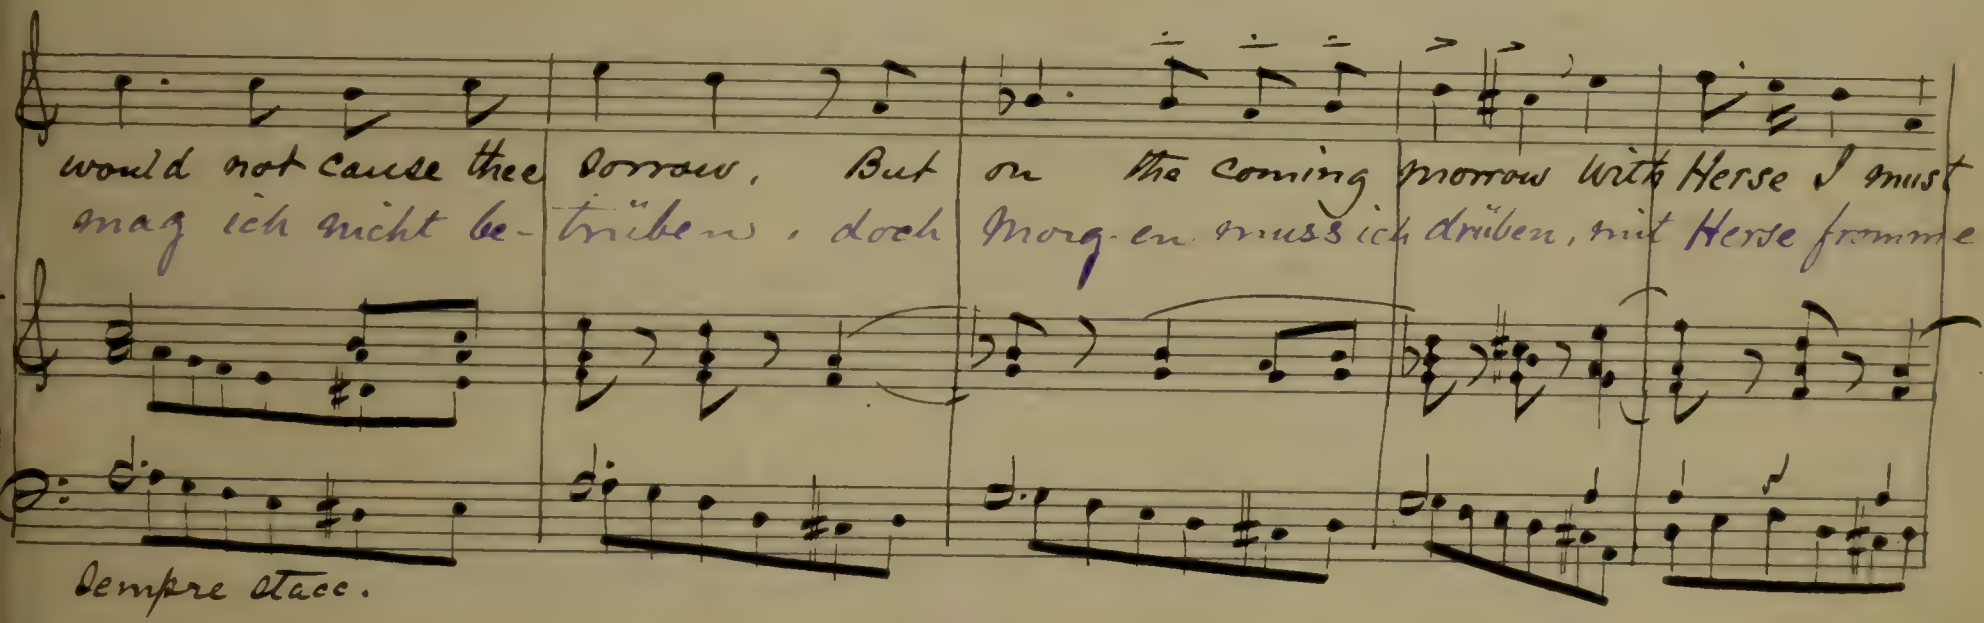 would not cause thee sorrow, But on the coming morrow With Herse I must
mag ich nicht be- trüben, doch Morg-en muss ich drüben, mit Herse fromme
Sempre stacc.